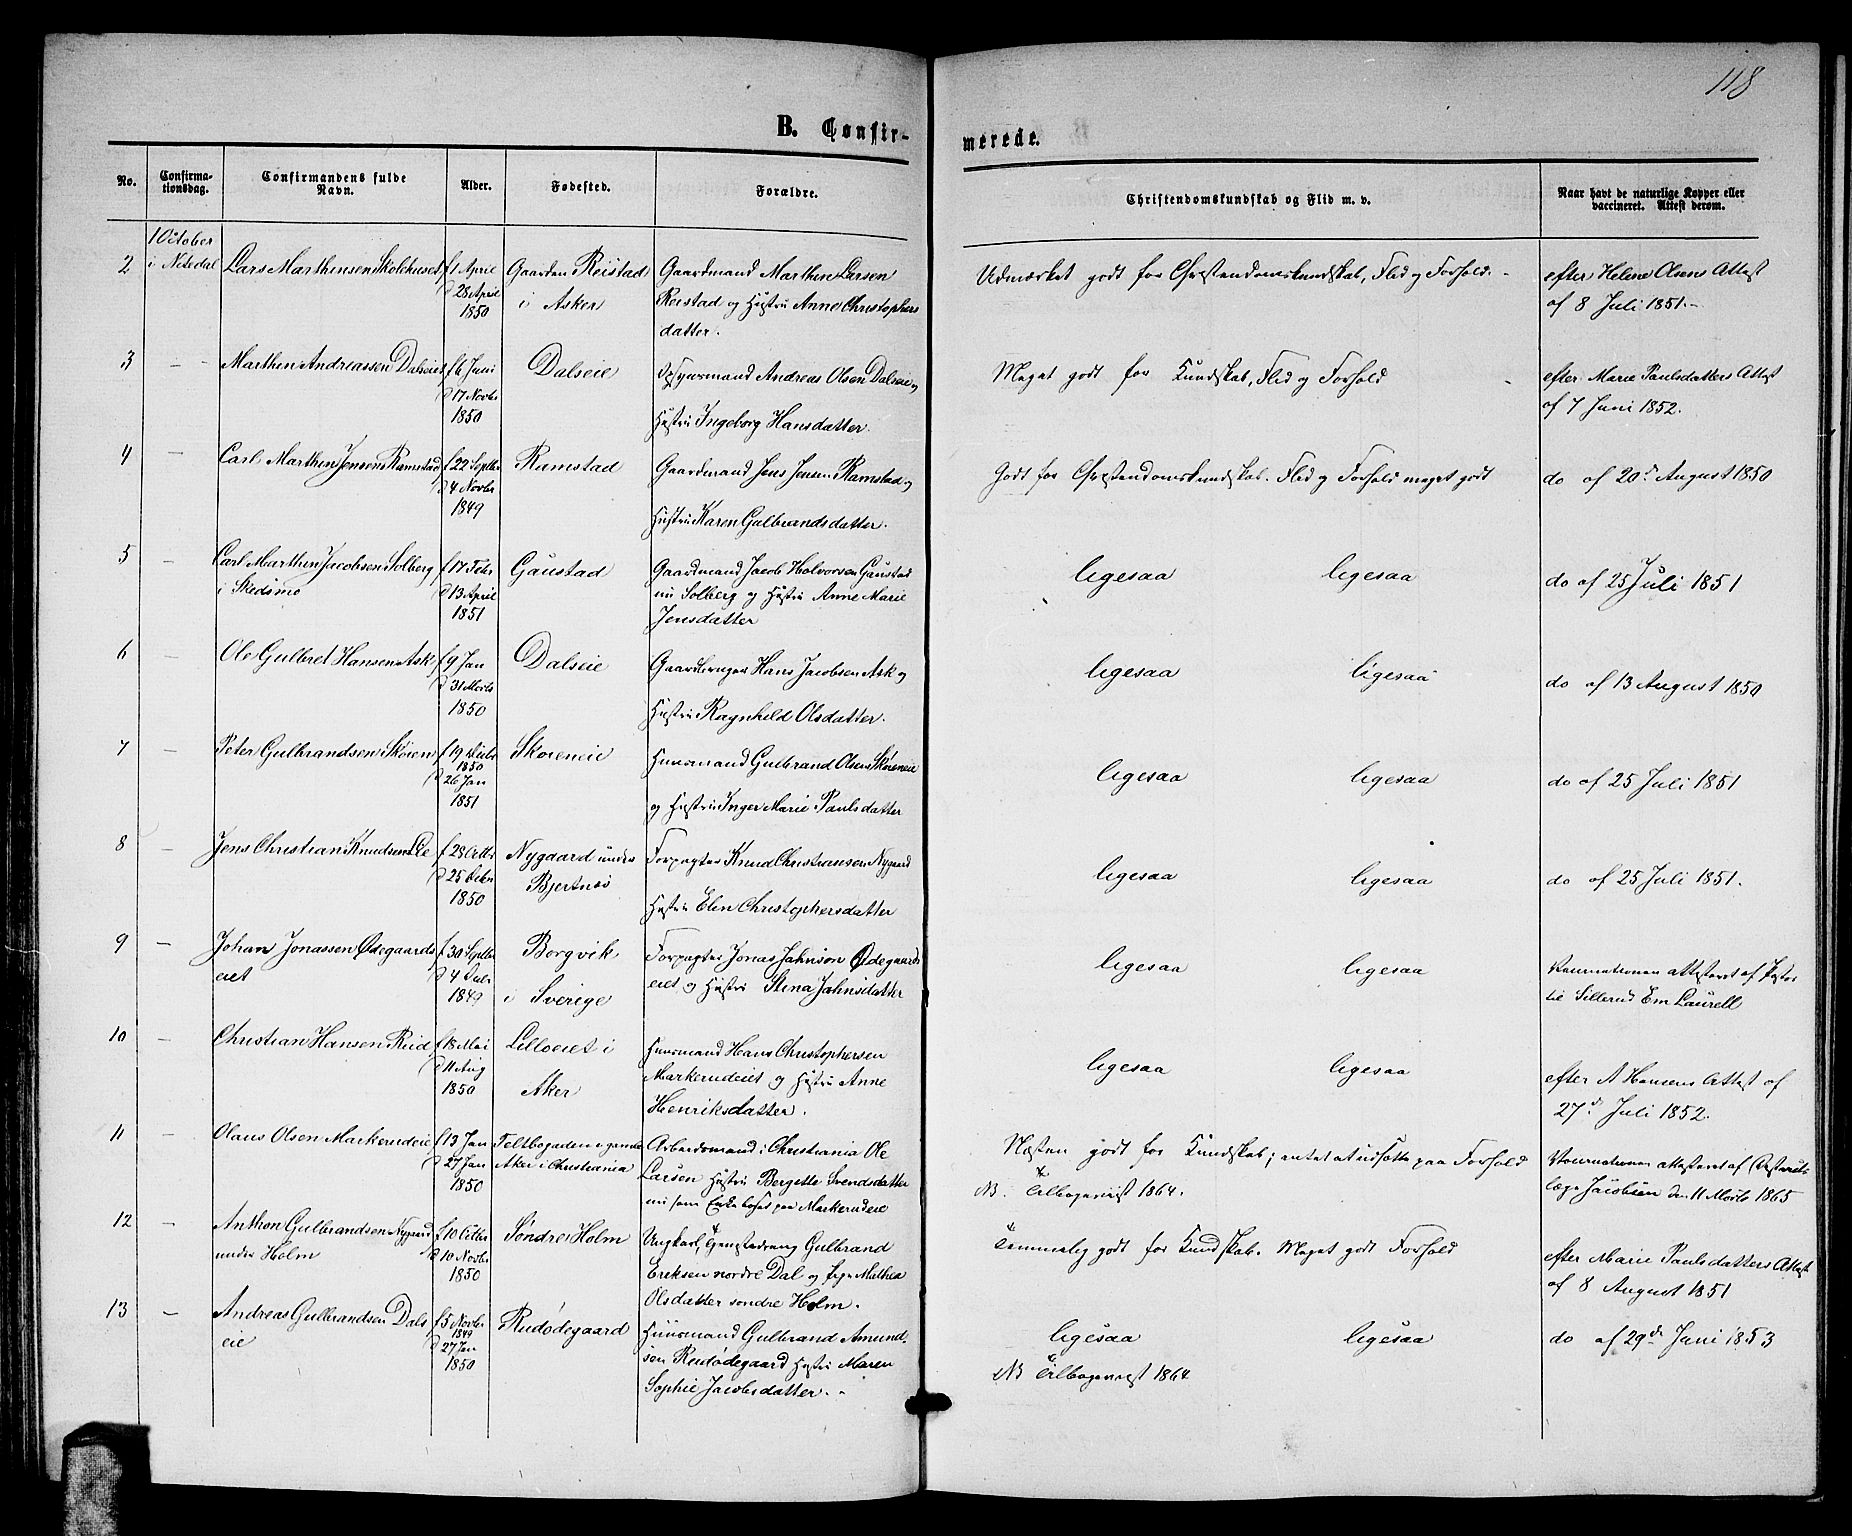 118
B. Confir-
merede.
No.
Confirma-
tionsdag.
Confirmandens fulde
Navn.
Alder.
Fødested.
Forældre.
Christendomskundskab og Flid m. v.
Naar havt de naturlige Kopper eller
vaccineret. Attest derom.
1 October
i Nitedal
2
Lars Marthinsen Skolehuset
f 1 April
d 28 April
1850
Gaarden Reistad
i Asker
Gaardmand Marthin Larsen
Reistad og Hustru Anne Christophers
datter.
Udmærket godt for Christendomskundskab, Flid og Forhold. -
efter Helene Olsens Attest
af 8 Juli 1851.-
3
-
Marthin Andreassen Dalseiet
f 6 Juni
d 17 Novbr
1850
Dalseie
Opsynsmand Andreas Olsen Dalseie og
Hustru Ingeborg Hansdatter.
Meget godt for Kundskab, Flid og Forhold
efter Marie Paulsdatters Attest
af 7 Juni 1852.
4
-
Carl Marthin Jensen Ramstad
f 22 Septbr
d 4 Novbr
1849
Ramstad
Gaardmand Jens Jensen Ramstad og
Hustru Karen Gulbrandsdatter.
Godt for Christendomskundskab. Flid og Forhold meget godt
do af 20de August 1850
5
-
Carl Marthin Jacobsen Solberg
i Skedsmo
f 17 Febr
d 13 April
1851
Gaustad
Gaardmand Jacob Halvorsen Gaustad
nu Solberg og Hustru Anne Marie
Jensdatter
ligesaa ligesaa
do af 25 Juli 1851
6
-
Ole Gulbret Hansen Ask
f 9 Jan
d 31 Marts
1850
Dalseie
Gaardbruger Hans Jacobsen Ask og
Hustru Ragnhild Olsdatter.
ligesaa ligesaa
do af 13 August 1850
7
-
Peter Gulbrandsen Skøien
f 19 Decbr
1850
d 26 Jan
1851
Skøieneie
Huusmand Gulbrand Olsen Skøieneie
og Hustru Inger Marie Paulsdatter
ligesaa ligesaa
do af 25 Juli 1851
8
-
Jens Christian Knudsen Lie
f 28 Octbr
d 25 Decbr
1850
Nygaard under
Bjertnæs
Forpagter Knud Christiansen Nygaard
Hustru Elen Christophersdatter
ligesaa ligesaa
do af 25 Juli 1851.
9
-
Johan Jonassen Ødegaards
eiet
f 30 Septbr
d 4
1849
Borgvik
i Sverige
Forpagter Jonas Jahnson Ødegaards
eiet og Hustru Stina Jahnsdatter
ligesaa ligesaa
Vaccinationen attesteret af Pastor
Sillerud Em Laurell
10
-
Christian Hansen Reid
f 18 Mai
d 11 Aug
1850
Lilloeiet i
Aker
Huusmand Hans Christophersen
Markerudeiet og Hustru Anne
Henriksdatter.
ligesaa ligesaa
efter A Hansens Attest af
27de Juli 1852.
11
-
Olaus Olsen Markerudeie
f 13 Jan
d 27 Jan
1850
Feltbogaden i gamle
Aker i Christiania
Arbeidsmand i Christiania Ole
Larsen Hustru Bergette Svendsdatter
nu som Enke bosat paa Markerudeie
Næsten godt for Kundskab; intet at udsætte paa Forhold
NB. Tilbageviist 1864.
Vaccinationen attesteret af
læge Jacobsen den 11 Marts 1865
12
-
Anthon Gulbrandsen Nygaard
under Holm
f 10 Octbr
d 10 Novbr
1850
Søndre Holm
Ungkarl, Tjenestedreng Gulbrand
Eriksen nordre Dal og Pige Mathea
Olsdatter søndre Holm.
Temmelig godt for Kundskab. Meget godt Forhold
efter Marie Paulsdatters Attest
af 8 August 1851
13
-
Andreas Gulbrandsen Dals
eie
f 5 Novbr
1849
d 27 Jan
1850
Rudødegaard
Huusmand Gulbrand Amund
sen Rudødegaard Hustru Maren
Sophie Jacobsdatter. -
ligesaa ligesaa
NB Tilbageviist 1864
do af 29de Juni 1853